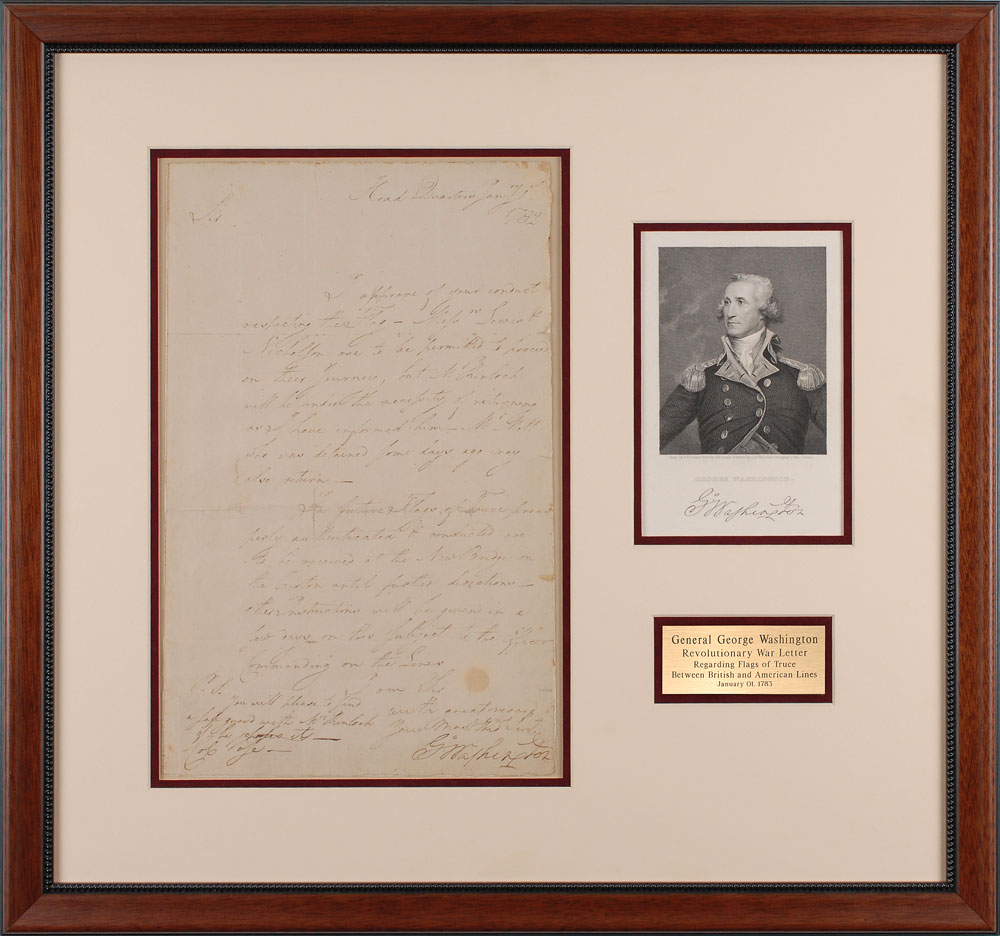 Head Quarters Jany 1st
178
Sir
I approve of your conduct
respecting the Flag — Messrs Lewis &
Nicholson are to be permitted to proceed
on their Journey, but Mr
will be under the necessity of returning
as I have informed him — Mr Mott
who was detained some days ago may
also return —
In future Flags of Truce pro
perly authenticated & conducted are
to be received at the New Bridge on
the Croton until further directions —
other Instructions will be given in a
few days on this Subject to the Officer
Commanding on the Lines
I am Sir
with great regard
Your Most Obedt Servt
Go Washington
P.S.
You will please to send
a safe guard with Mr
if he chuses it —
GEORGE WASHINGTON.
Go Washington
General George Washington
Revolutionary War Letter
Regarding Flags of Truce
Between British and American Lines
January 01, 1783